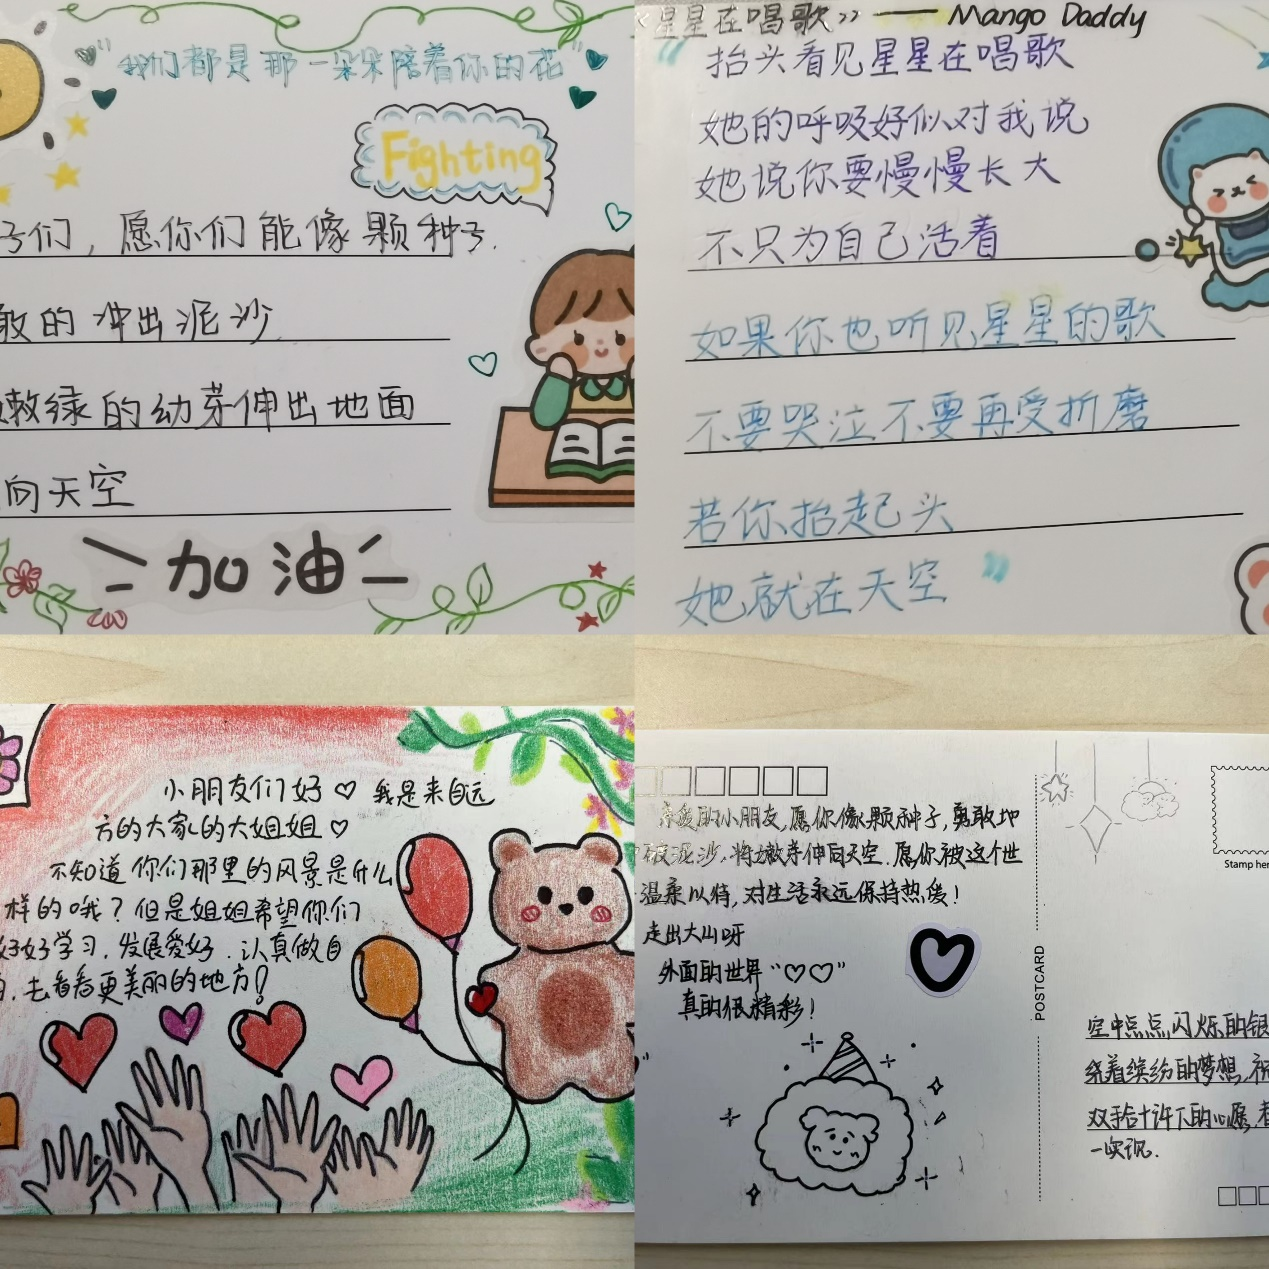 "我们都是那一朵朵陪着你的花"
Fighting
子们，愿你们能像颗种子.
敢的冲出泥沙
嫩绿的幼芽伸出地面
向天空
加油
《星星在唱歌》—— Mango Daddy
"抬头看见星星在唱歌
她的呼吸好似对我说
她说你要慢慢长大
不只为自己活着
如果你也听见星星的歌
不要哭泣不要再受折磨
若你抬起头
她就在天空"
小朋友们好♡ 我是来自远
方的大家的大姐姐♡
不知道你们那里的风景是什么
样的哦？但是姐姐希望你们
好好学习，发展爱好，认真做自
己，去看看更美丽的地方！
亲爱的小朋友,愿你像颗种子,勇敢地
破泥沙,将嫩芽伸向天空.愿你被这个世
温柔以待,对生活永远保持热爱！
走出大山呀
外面的世界"♡♡"
真的很精彩！
Stamp her
POSTCARD
空中点点闪烁的银
绕着缤纷的梦想,祝
双手合十许下的心愿,都
一实现.